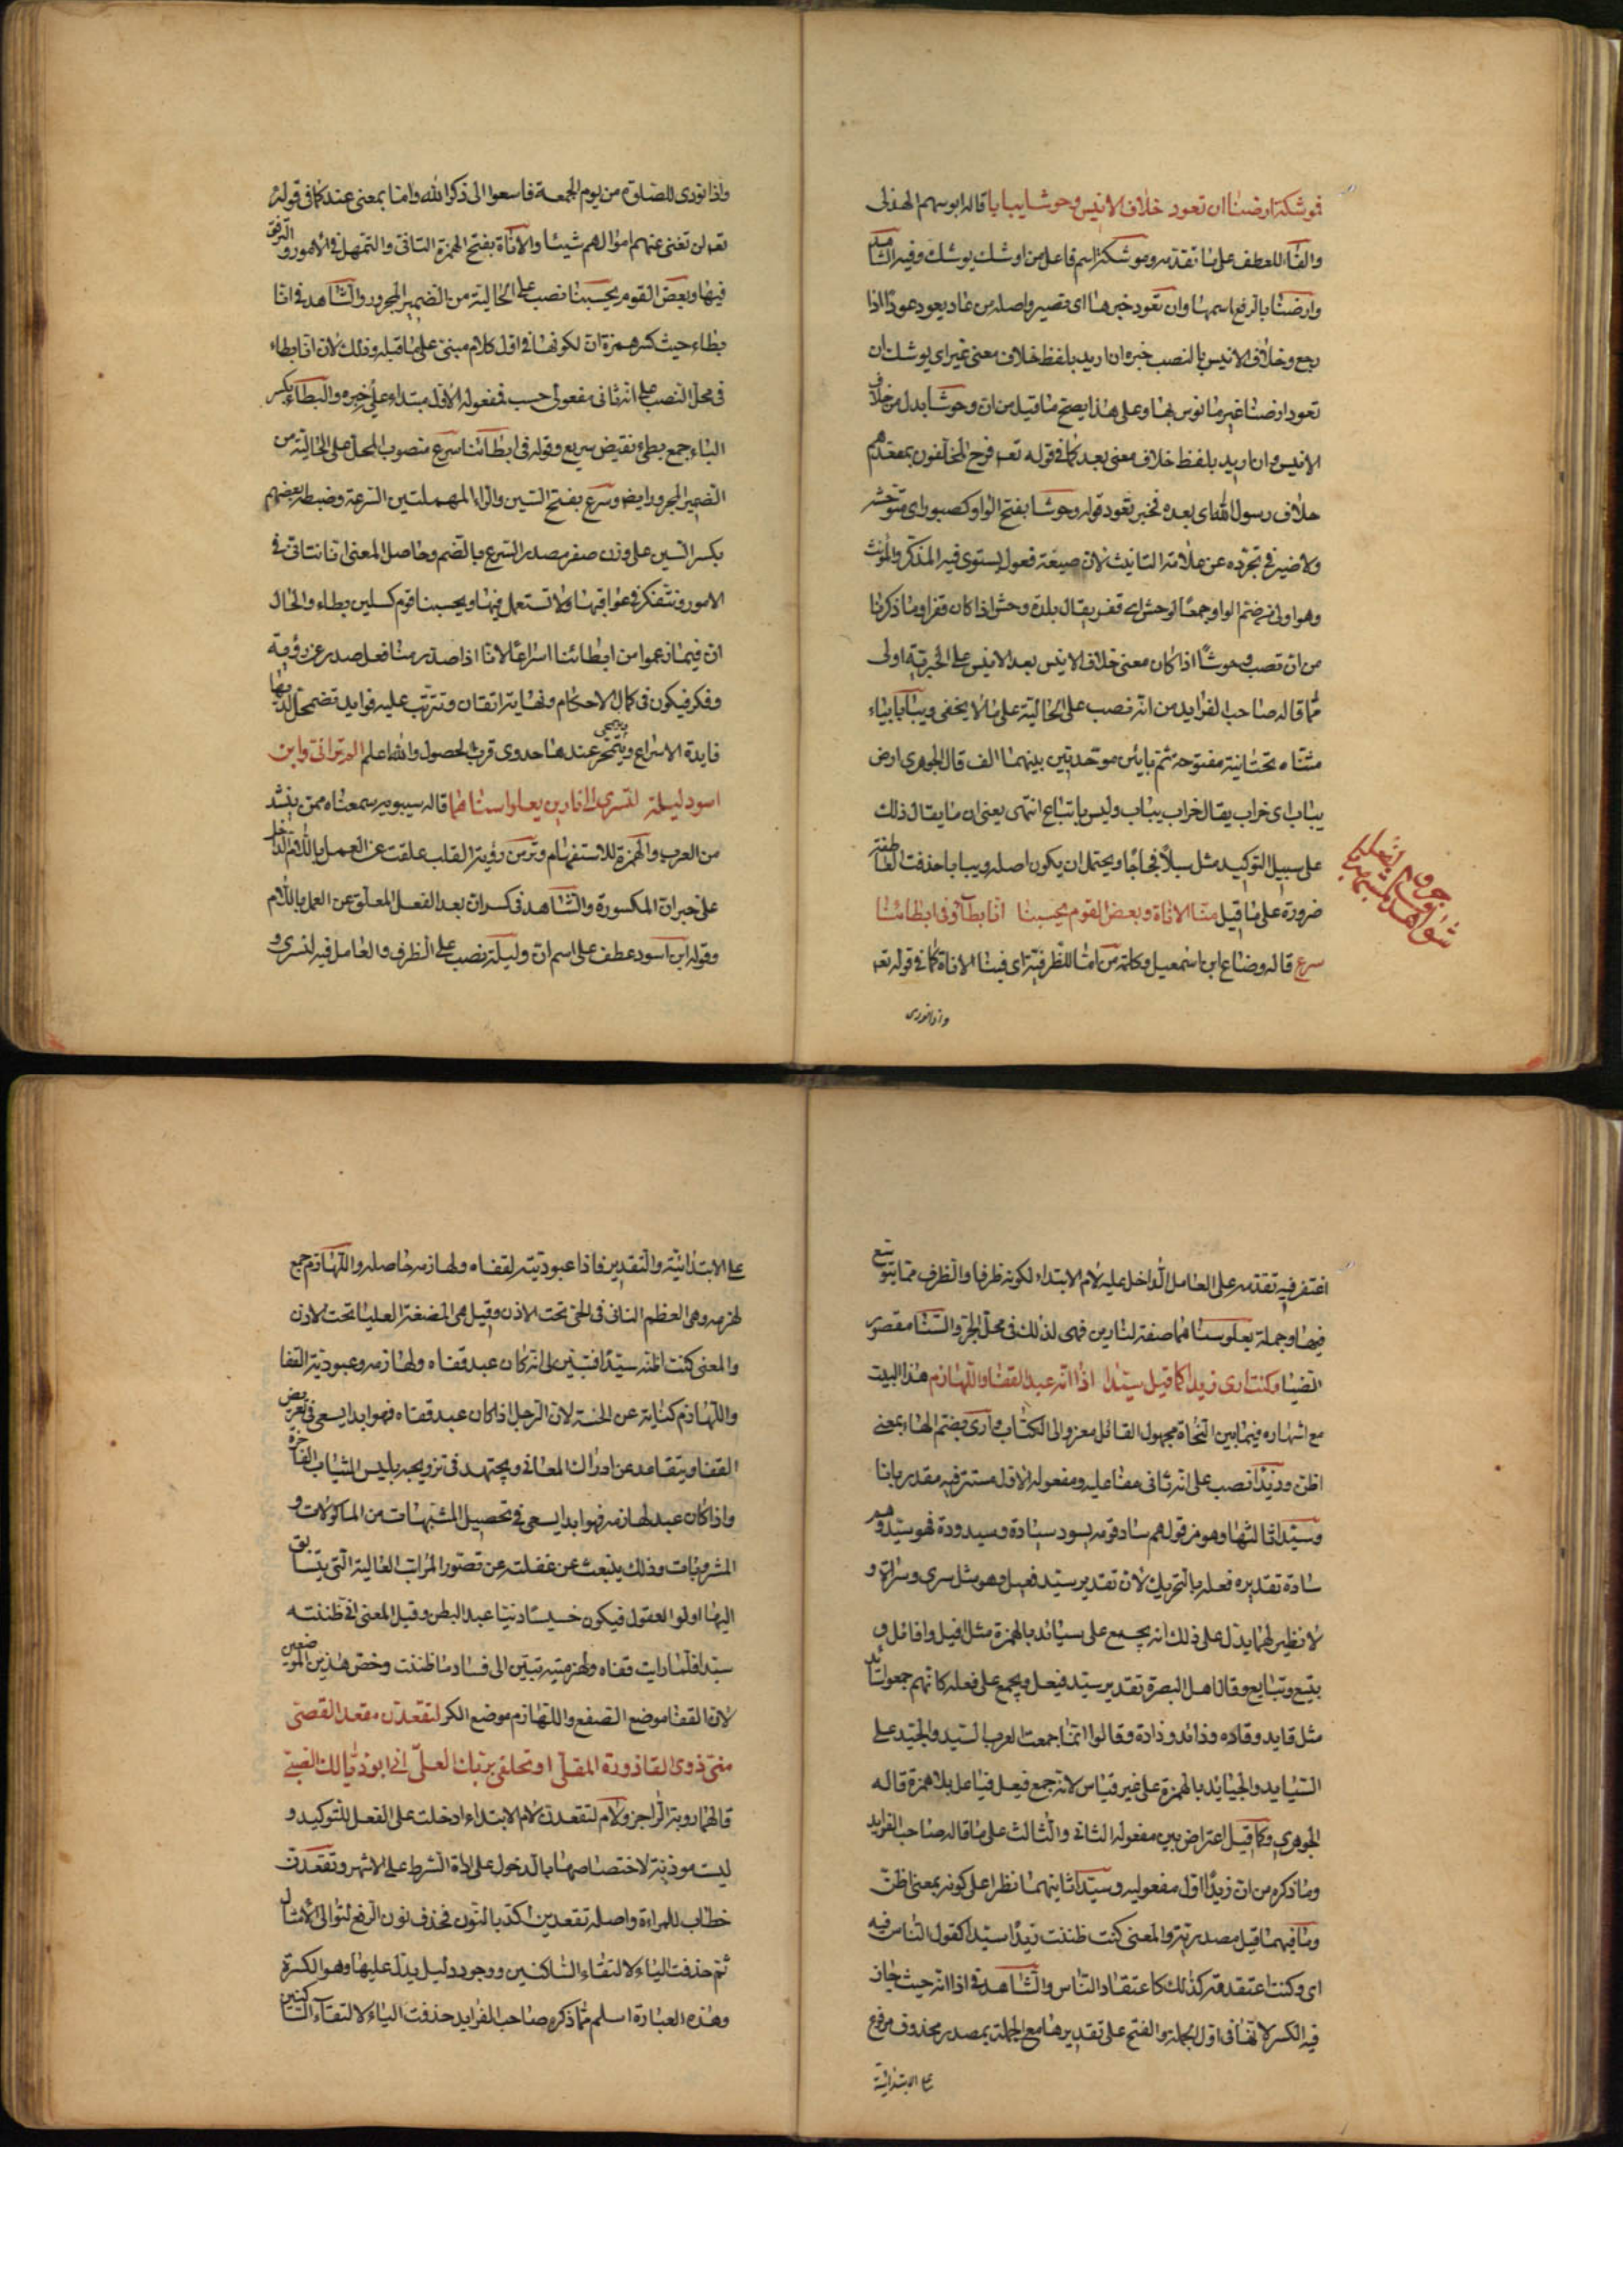 فموشكة ارضنا ان تعود خلاف الانيس وحوشا يبابا قاله ابو سهم الهذلى
والفاء للعطف على ما تقدمه وموشكة اسم فاعل من اوشك يوشك وفيه الشاهد
وارضنا بالرفع اسمها وان تعود خبرها اى تصير واصله من عاد يعود عودا اذا
رجع وخلاف الانيس بالنصب خبره ان اريد بلفظ خلاف معنى غير اى يوشك ان
تعود ارضنا غير مانوس بها وعلى هذا يصح ما قيل من ان وحوشا بدل من خلاف
الانيس وان اريد بلفظ خلاف معنى بعد كما فى قوله تعه فرح المخلفون بمقعدهم
خلاف رسول الله اى بعده فخبر تعود قوله وحوشا بفتح الواو كصبور اى متوحشة
ولا ضير فى تجرده عن علامة التانيث لان صيغة فعول يستوى فيه المذكر والمؤنث
وهو اولى من ضم الواو جمعا لوحش اى قفر يقال بلدة وحش اذا كان قفرا وما ذكرنا
من ان نصب وحوشا اذا كان معنى خلاف الانيس بعد الانيس على الخبرية اولى
مما قاله صاحب الفرايد من انه نصب على الحالية على ما لا يخفى ويبابا بياء
مثناه تحتانية مفتوحة ثم بائين موحدتين بينهما الف قال الجوهرى ارض
يباب اى خراب يقال خراب يباب وليس باتباع انتهى يعنى ان ما يقال ذلك
على سبيل التوكيد مثل سبلا فجاجا ويحتمل ان يكون اصله ويبابا حذفت العاطفة
ضرورة على ما قيل منا الاناة وبعض القوم يحسبنا انا بطاء وفى ابطائنا
سرع قاله وضاع ابن اسمعيل وكلمة من فى منا للظرفية اى فينا الاناة كما فى قوله تعه
واذا نودى
واذا نودى للصلوة من يوم الجمعة فاسعوا الى ذكر الله واما بمعنى عند كما فى قوله
تعه لن تغنى عنهم اموالهم شيئا والاناة بفتح الهمزة التانى والتمهل فى الامور والترفق
فيها وبعض القوم يحسبنا نصب على الحالية من الضمير المجرور والشاهد فى انا
بطاء حيث كسر همزة ان لكونها فى اول كلام مبنى على ما قبله وذلك لان انا بطاء
فى محل النصب على انه ثانى مفعولى حسب فمفعوله الاول مبتداء على خبره والبطاء بكسر
الباء جمع بطىء نقيض سريع وقوله فى ابطائنا سرع منصوب المحل على الحالية من
الضمير المجرور ايضا وسرع بفتح السين والراء المهملتين السرعة وضبطه بعضهم
بكسر السين على وزن صغر مصدر السرع بالضم وحاصل المعنى انا نتانى فى
الامور ونتفكر فى عواقبها ولا نستعمل فيها ويحسبنا قوم كسلين بطاء والحال
ان فيما زعموا من ابطائنا اسراعا لانا اذا صدر منا فعل صدر عن روية
وفكر فيكون فى كمال الاحكام ونهاية اتقان وتترتب عليه فوايد تضمحل لديها
فايدة الاسراع ويتمحى عندها جدوى قرب الحصول والله اعلم الم ترانى وابن
اسود ليلة لنسرى الى نارين يعلوا سناهما قاله سيبويه سمعناه ممن ينشد
من العرب والهمزة للاستفهام وترى من رؤية القلب علقت عن العمل باللام الداخل
على خبر ان المكسورة والشاهد فى كسر ان بعد الفعل المعلق عن العمل باللام
وقوله ابن اسود عطف على اسم ان وليلة نصب على الظرف والعامل فيه لنسرى و
اغتفر فيه تقدمه على العامل الداخل عليه لام الابتداء لكونه ظرفا والظرف مما يتوسع
فيها وجملة يعلو سناهما صفة لنارين فهى لذلك فى محل الجر والسنا مقصور
الضيا وكنت ارى زيدا كما قيل سيدا اذا انه عبد القفا واللهازم هذا البيت
مع اشتهاره فيما بين النحاة مجهول القائل معزو الى الكتاب وارى بضم الهاء بمعنى
اظن وزيدا نصب على انه ثانى مفاعيله ومفعوله الاول مستتر فيه مقدر بانا
وسيدا ثالثها وهو من قولهم ساد قومه يسود سيادة وسيدودة فهو سيد وهم
سادة تقديره فعلة بالتحريك لان تقدير سيد فعيل وهو مثل سرى وسراة و
لا نظير لهما يدل على ذلك انه يجمع على سيائد بالهمزة مثل افيل وافائل و
بتيع وتبايع وقال اهل البصرة تقدير سيد فيعل ويجمع على فعلة كانهم جمعوا سائد
مثل قايد وقاده وذائد وذادة وقالوا انما جمعت العرب السيد والجيد على
السيايد والجيائد بالهمزة على غير قياس لان جمع فيعل فياعل بلا همزة قاله
الجوهرى وكما قيل اعتراض بين مفعوله الثانى والثالث على ما قاله صاحب الفرايد
وما ذكره من ان زيدا اول مفعوليه وسيدا ثانيهما نظرا على كونه بمعنى اظن
وما فيهما قيل مصدرية والمعنى كنت ظننت زيدا سيدا كقول الناس فيه
اى وكنت اعتقدته كذلك كاعتقاد الناس والشاهد فى اذا انه حيث جاز
فيه الكسر لانها فى اول الجملة والفتح على تقديرها مع الجملة بمصدر محذوف مرفوع
على الابتدائية
على الابتدائية والتقدير فاذا عبوديته لقفاه ولهازمه حاصله واللهازم جمع
لهزمه وهى العظم الناتى فى اللحى تحت الاذن وقيل هى المضغة العليا تحت الاذن
والمعنى كنت اظنه سيدا فتبين لى انه كان عبد قفاه ولهازمه وعبودية القفا
واللهازم كناية عن الخسة لان الرجل اذا كان عبد قفاه فهو ابدا يسعى فى تعريض
القفا ويتقاعد عن ادراك المعانى ويجتهد فى ترويجه بلبس الثياب الفاخرة
واذا كان عبد لهازمه فهو ابدا يسعى فى تحصيل المشتهيات من الماكولات و
المشروبات وذلك ينبعث عن غفلته عن تصور المراتب العالية التى يتسابق
اليها اولو العقول فيكون خسيسا دنيا عبد البطن وقيل المعنى انى ظننته
سيدا فلما رايت قفاه ولهزميته تبين الى فساد ما ظننت وخص هذين الموضعين
لان القفا موضع الصفع واللهازم موضع الكز لتقعدن مقعد القصى
منى ذوى القاذورة المقلى او تحلفى بربك العلى انى ابو ذيالك الصبى
قالهما روبة الراجز ولام لتقعدن لام الابتداء ادخلت على الفعل للتوكيد و
ليست موذنة لاختصاصها بالدخول على اداة الشرط على الاشهر وتقعدن
خطاب للمراءة واصله تقعدين اكد بالنون فحذف نون الرفع لتوالى الامثال
ثم حذفت الياء لالتقاء الساكنين ووجود دليل يدل عليها وهو الكسرة
وهذه العبارة اسلم مما ذكره صاحب الفرايد حذفت الياء لالتقاء الساكنين